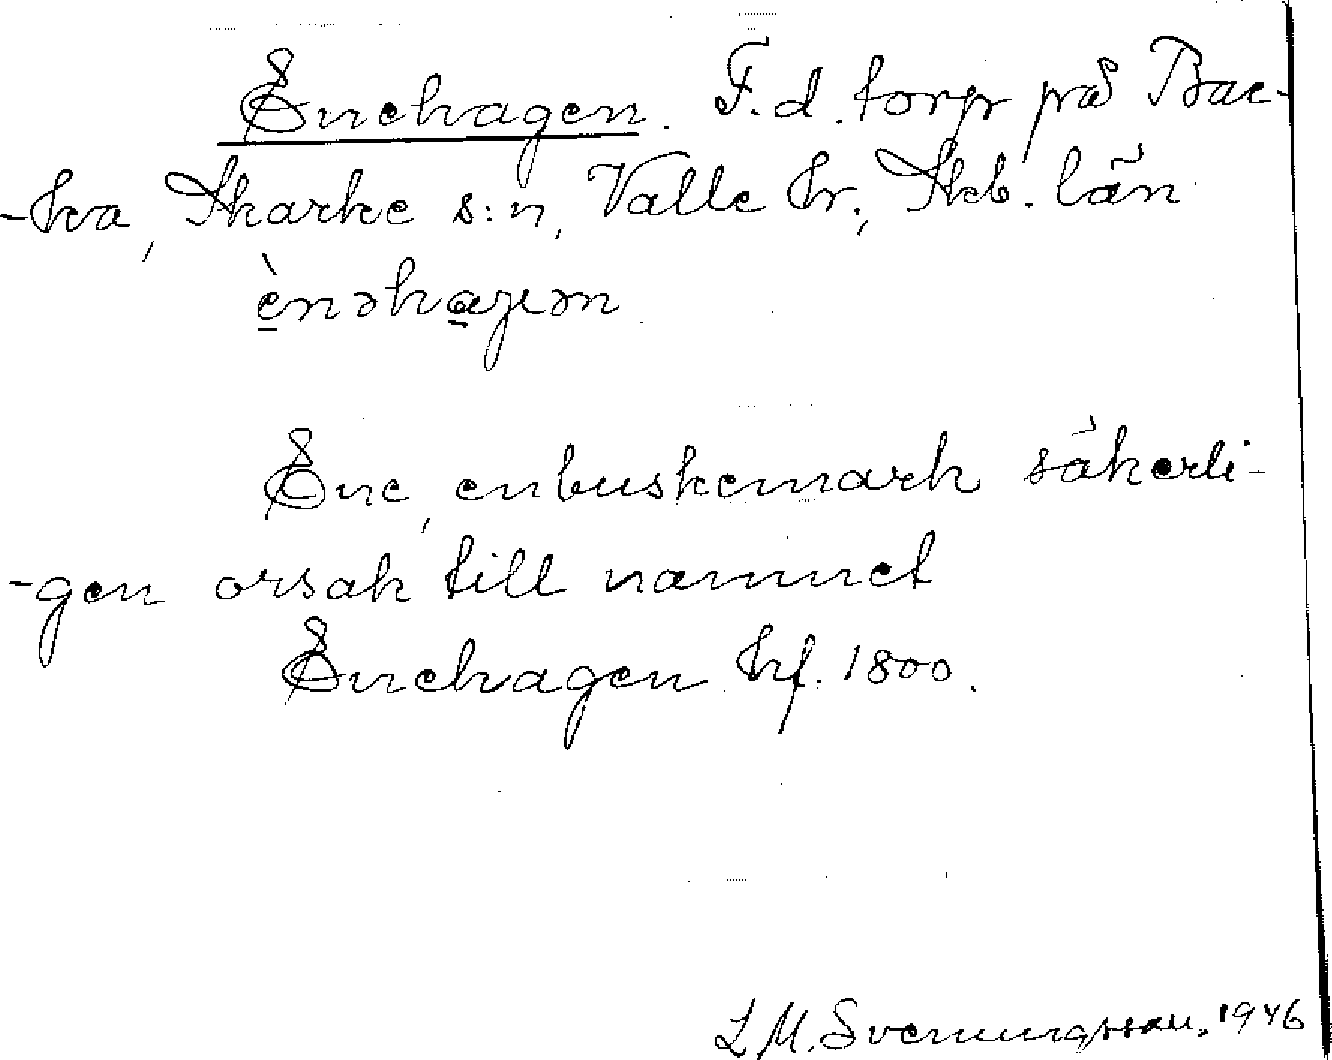 Enehagen. F.d. torp på Bac-
-ka, Skarke s:n, Valle hr., Skb. län
ènəhaɡən
Ene, enbuskemark säkerli-
-gen orsak till namnet
Enehagen hf. 1800.
L M. Svenungsson, 1946